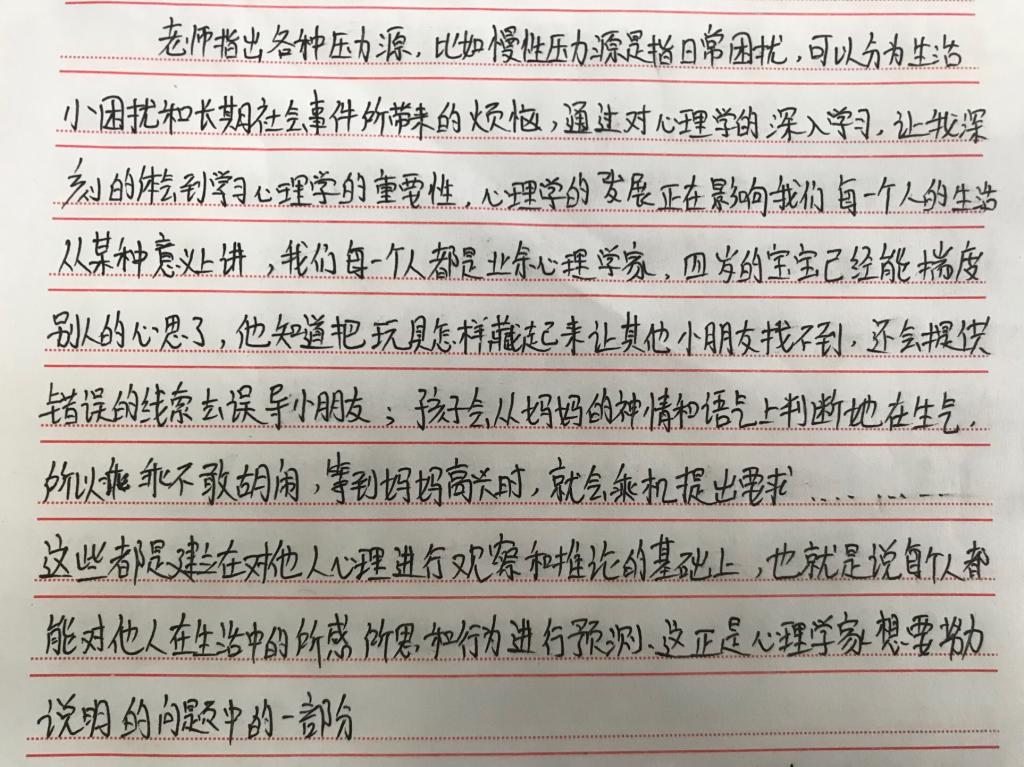 老师指出各种压力源，比如慢性压力源是指日常困扰，可以分为生活
小困扰和长期社会事件所带来的烦恼，通过对心理学的深入学习，让我深
刻的体会到学习心理学的重要性，心理学的发展正在影响我们每一个人的生活
从某种意义上讲，我们每一个人都是业余心理学家，四岁的宝宝已经能揣度
别人的心思了，他知道把玩具怎样藏起来让其他小朋友找不到，还会提供
错误的线索去误导小朋友；孩子会从妈妈的神情和语气上判断她在生气，
所以乖乖不敢胡闹，等到妈妈高兴时，就会乘机提出要求……
这些都是建立在对他人心理进行观察和推论的基础上，也就是说每个人都
能对他人在生活中的所感所思和行为进行预测、这正是心理学家想要努力
说明的问题中的一部分